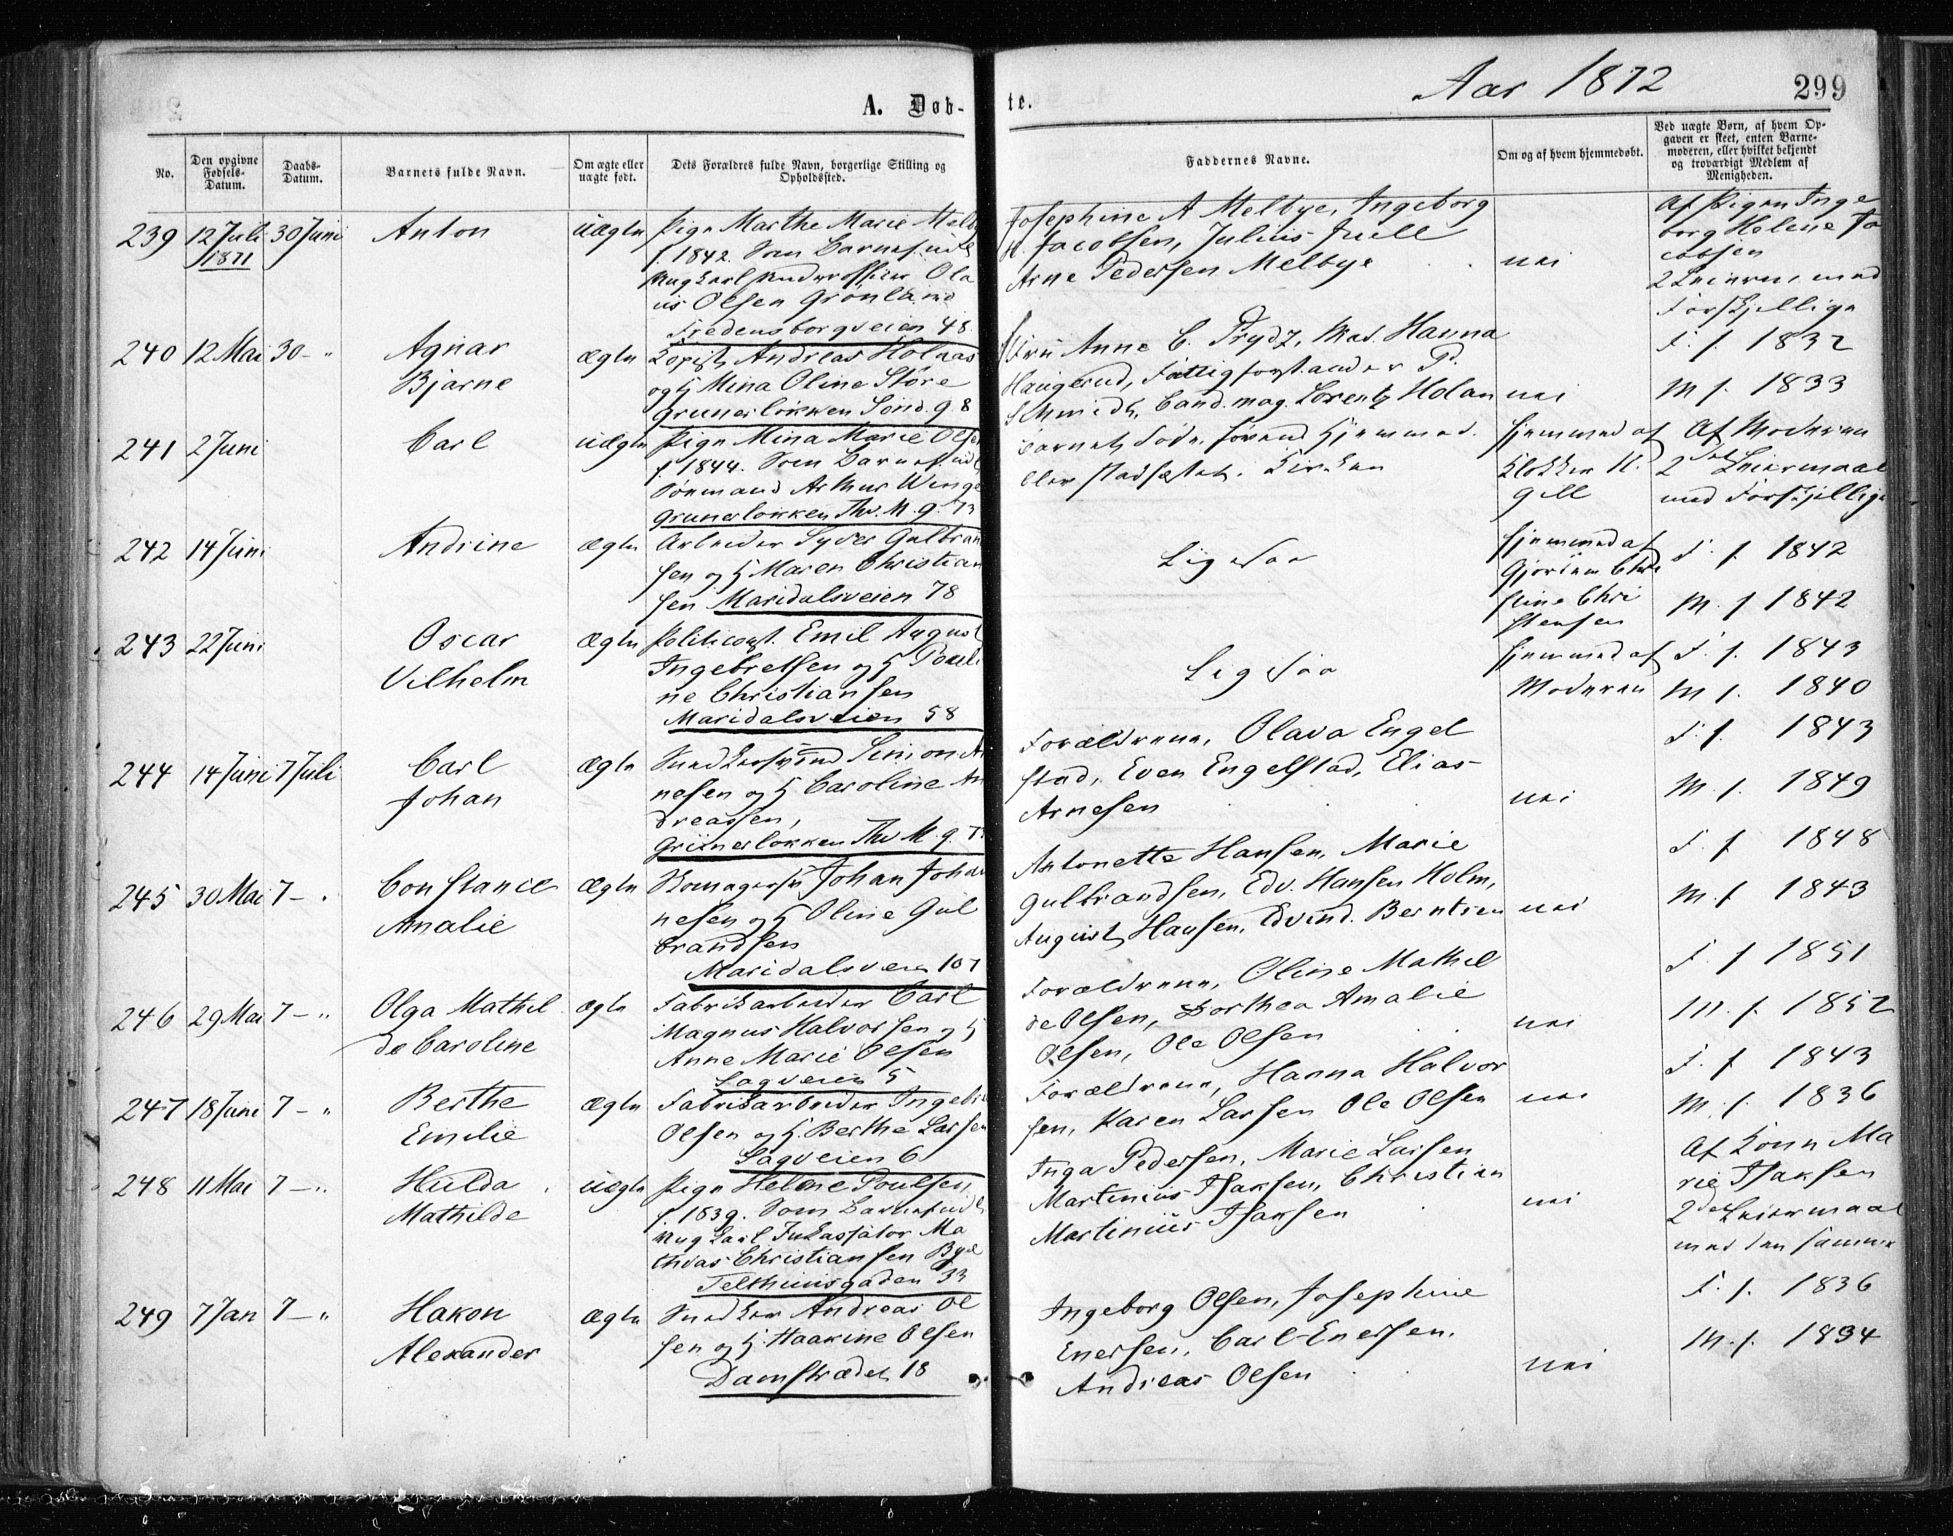 A. Døb-
te.
Aar 1872
299
No.
Den opgivne Fødsels-Datum.
Daabs-Datum.
Barnets fulde Navn.
Om ægte eller uægte født.
Dets Forældres fulde Navn, borgerlige Stilling og Opholdssted.
Faddernes Navne.
Om og af hvem hjemmedøbt.
Ved uægte Børn, af hvem Opgaven er skeet, enten Barnemoderen, eller hvilket bekjendt og troværdigt Medlem af Menigheden.
239 12 Juli 1871 30 Juni Anton uægte
Pige Marthe Marie Melby
f. 1842. Som Barnefader
Ungkarl Underofficer Ola
us Olsen Grønland
Fredensborgveien 48
Josephine A Melbye, Ingeborg
H. Jacobsen, Julius Juell
Arne Pedersen Melbye
nei
Af Pigen Inge
borg Helene Ja
cobsen
2 Leierm. med
Forskjellige
240 12 Mai 30 - " Agnar
Bjarne
ægte
Kopist Andreas Holaas
og H Mina Oline Støre
Grünerløkken Sond. g 8
Fru Anne C. Prydz, Mad. Hanna
Haugerud, Fattigforstander P.
Schmidt, Cand. mag. Lorentz Holan
nei
F. f. 1832
M f. 1833
241 2 Juni Carl uægte
Pige Mina Marie Olsen
f. 1844. Som Barnefader
Sømand Arthur Winge
Grünerløkken Thv. M. g. 73
Barnets Døde førend Hjemmed.
blev stadfæstet i Kirken
Hjemmed af
Klokker H.
gill
Af Moderen
2det Leiermaal
med Forskjellige
242 14 Juni Andrine ægte
Arbeider Syver Gulbran
sen og H Maren Christian
sen Maridalsveien 78
Ligesaa
Hjemmed af
Gjordem Chri
stine Chri
stensen
F. f. 1842
M. f 1842
243 22 Juni Oscar
Vilhelm
ægte
Politicons. Emil August
Ingebretsen og H Pouli
ne Christiansen
Maridalsveien 58
Ligesaa
Hjemmed af
Moderen
F. f. 1843
M f. 1840
244 14 Juni 7 Juli Carl
Johan
ægte
Snedkersvend Simon Ar
nesen og H Caroline An
dreasen,
Grünerløkken Thv M. g.
Forældrene, Olava Engel
stad, Even Engelstad, Elias
Arnesen
nei
F. f. 1843
M. f. 1849
245 30 Mai 7 - " Constance
Amalie
ægte
Skomagersv Johan Johan
nesen og H Oline Gul
brandsen
Maridalsveien 107
Antonette Hansen, Marie
Gulbrandsen, Edv. Hansen Holm,
August Hansen, Edvind. Berntsen
nei
F. f 1848
M. f 1843
246 29 Mai 7 - " Olga Mathil
de Caroline
ægte
Fabrikarbeider Carl
Magnus Halvorsen og H
Anne Marie Olsen
Sagveien 5
Forældrene, Oline Mathil
de Olsen, Dorthea Amalie
Olsen, Ole Olsen
nei
F. f 1851
M. f. 1852
247 18 Juni 7 - " Berthe
Emilie
ægte
Fabrikarbeider Ingebr
Olsen og H. Berthe Larsen
Sagveien 6
Forældrene, Hanna Halvor
sen, Karen Larsen Ole Olsen
nei
F. f. 1843
M. f. 1836
248 11 Mai 7 - " Hulda
Mathilde
uægte
Pige Helene Poulsen,
f. 1839. Som Barnefader
Ungkarl Inkassator Ma
thias Christiansen Bye
Telthusgaden 33
Inga Pedersen, Marie Larsen
Martinius Isaksen, Christian
Martinius Isaksen
nei
Af Kone Ma
rie Isaksen
2det Leiermaal
med den samme
249 7 Jan 7 - " Hakon
Alexander
ægte
Snedker Andreas Ol
sen og H Haakine Olsen
Damstrædet 18
Ingeborg Olsen, Josephine
Enersen, Carl Enersen,
Andreas Olsen
nei
F. f. 1836
M. f. 1834